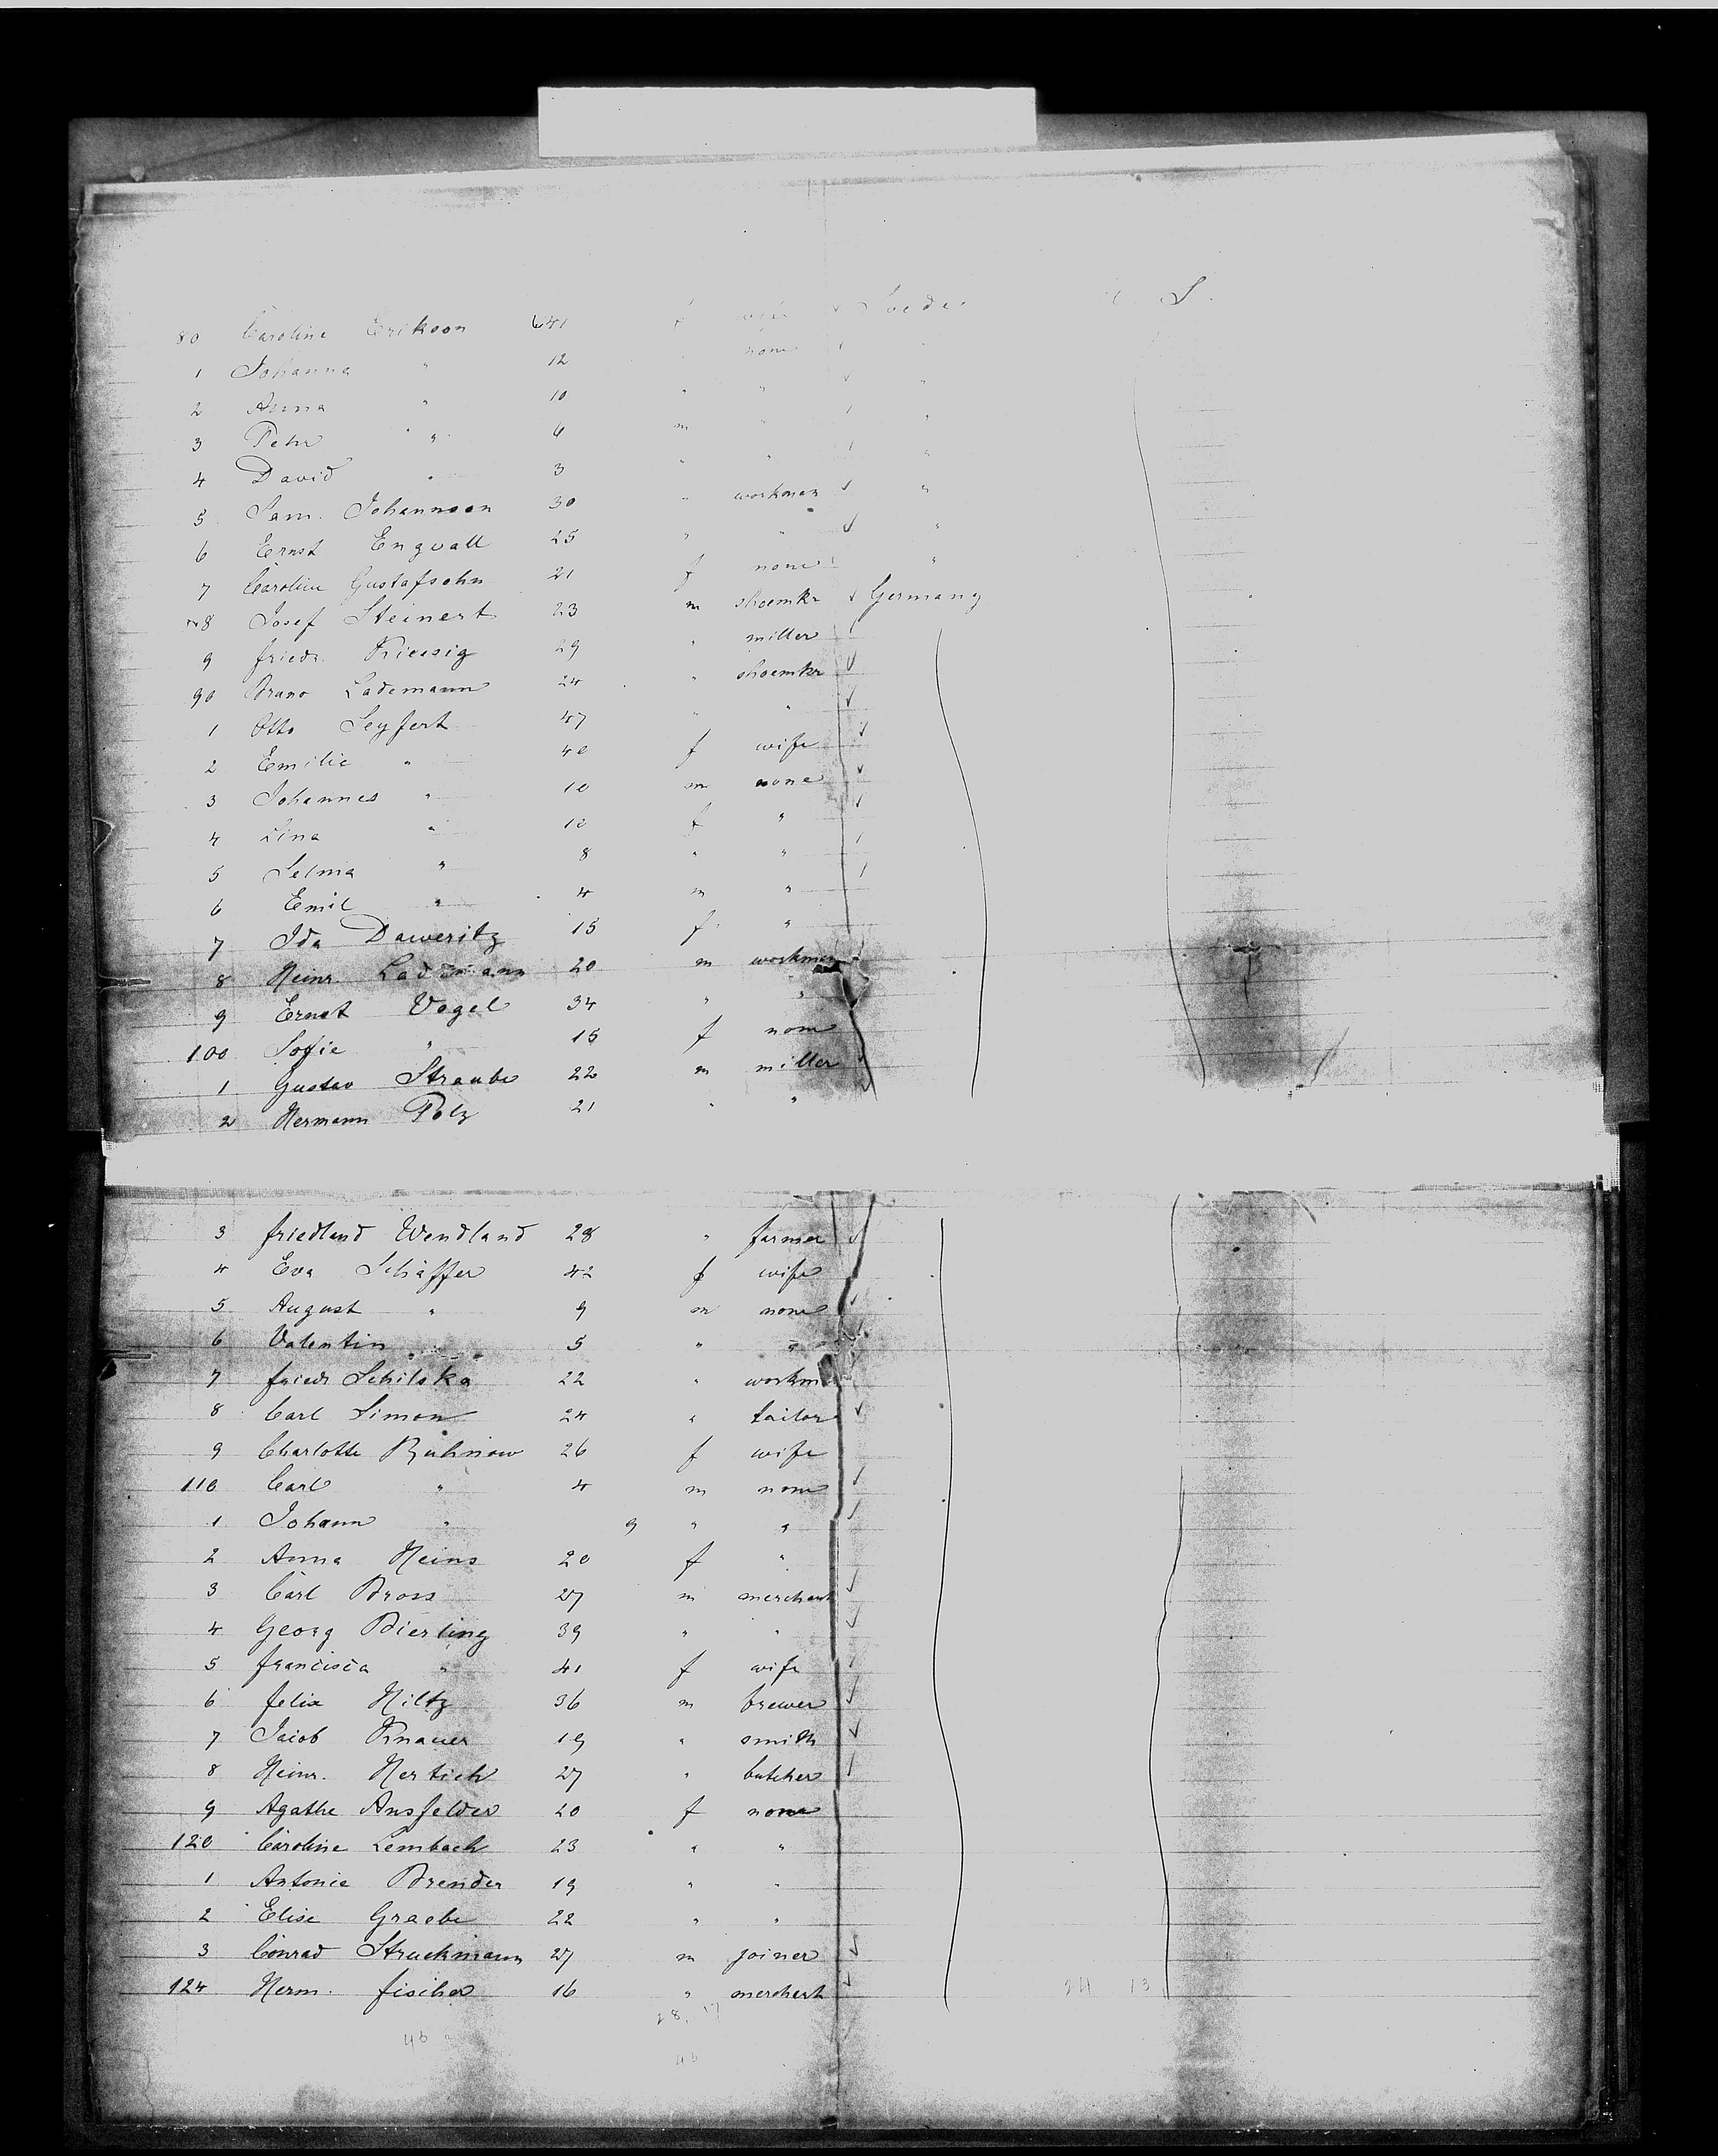 80 Caroline Erikson 41 f wife Swede S.
1 Johanna " 12 none
2 Anna " 10 " "
3 Pehr " 6 m "
4 David " 3 " " "
5 Sam. Johannson 30 " workman "
6 Ernst Engvall 25 " " "
7 Caroline Gustafsohn 21 f none "
8 Josef Steinert 23 m shoemkr Germany
9 friedr. Riessig 29 " miller
90 Bruno Lademann 24 " shoemkr
1 Otto Seyfert 47 " "
2 Emilie " 40 f wife
3 Johannes " 10 m none
4 Lina " 10 f "
5 Selma " 8 " "
6 Emil " 4 m "
7 Ida Daweritz 15 f "
8 Heinr. Lademann 20 m workman
9 Ernst Vogel 34 " "
100 Sofie " 15 f none
1 Gustav Straube 22 m miller
2 Hermann Polz 21 " "
3 friedland Wendland 28 " farmer
4 Eva Schäffer 42 f wife
5 August " 9 m none
6 Valentin " 5 " "
7 friedr Schilska 22 " workm
8 Carl Simon 24 " tailor
9 Charlotte Ruhnow 26 f wife
110 Carl " 4 m none
1 Johann " 9 " "
2 Anna Heins 20 f "
3 Carl Bross 27 m merchant
4 Georg Bierling 39 " "
5 francisca " 41 f wife
6 felix Hiltz 36 m brewer
7 Jacob Knauer 19 " smith
8 Heinr. Hertich 27 " butcher
9 Agathe Ansfelder 20 f none
120 Caroline Lembach 23 " "
1 Antonie Brender 19 " "
2 Elise Graebe 22 " "
3 Conrad Struckmann 27 m joiner
124 Herm. fischer 16 " merchant
24 13
28, 17
45
45